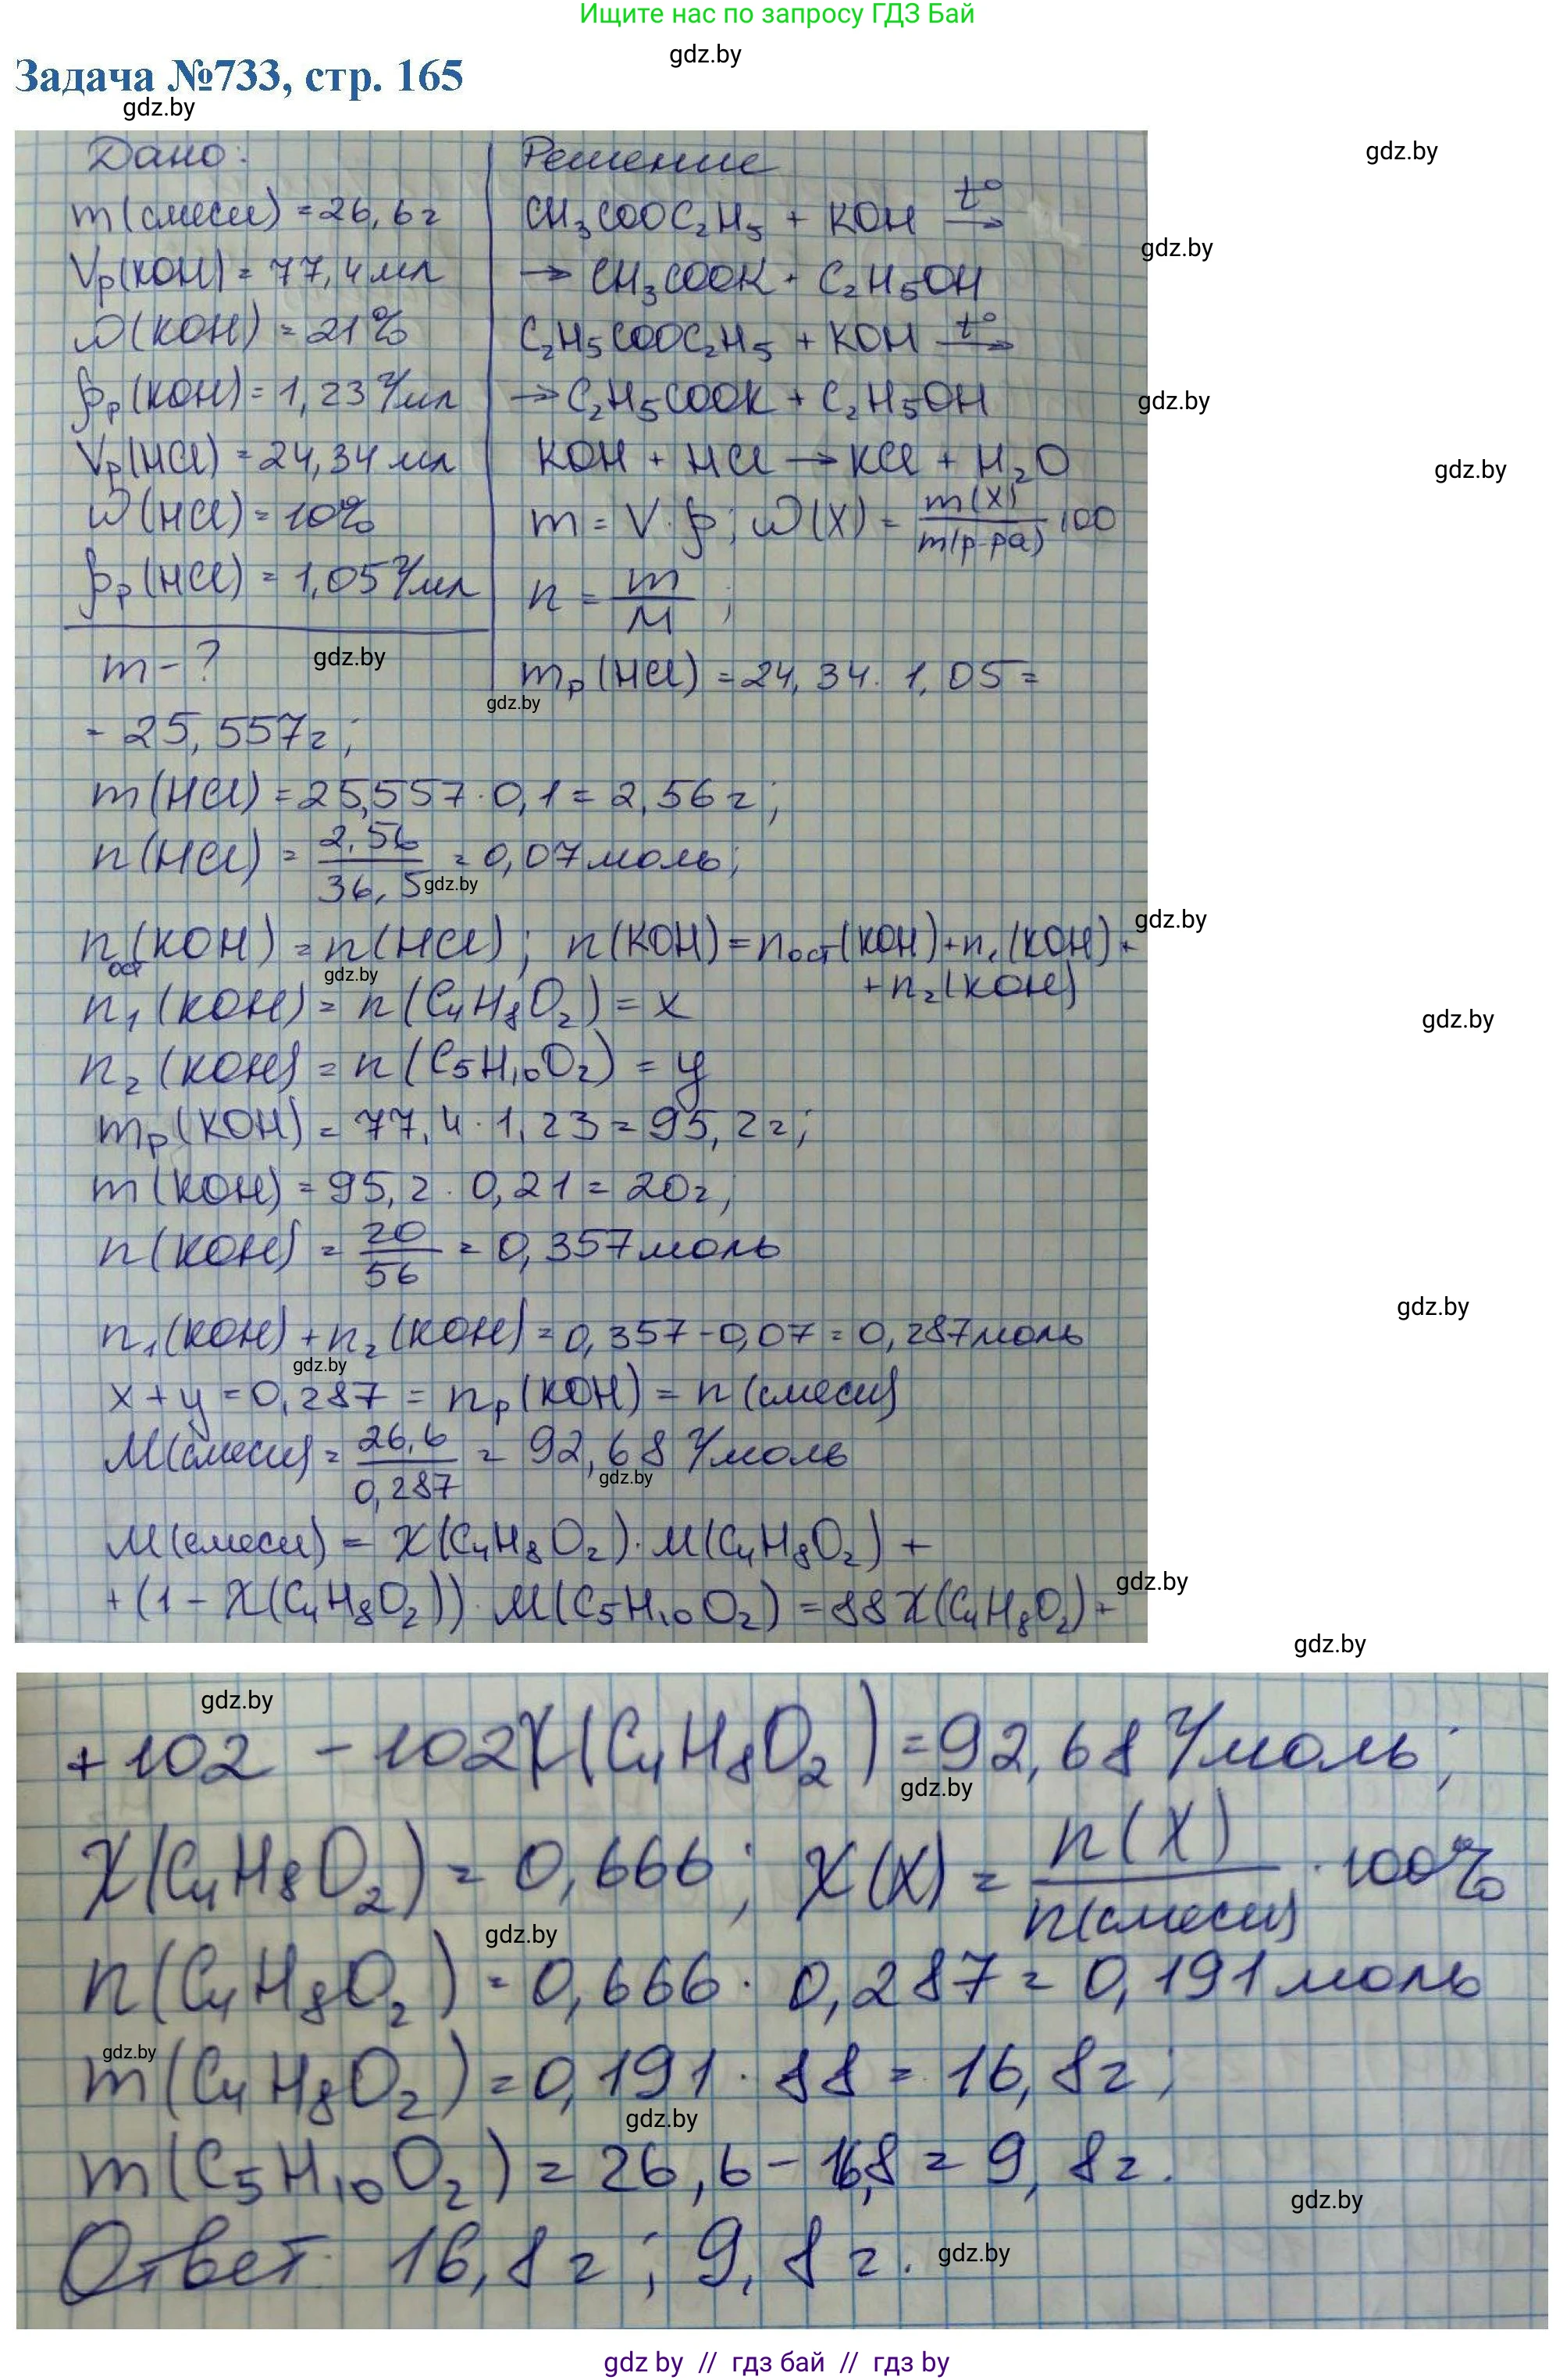 Ищите нас по запросу ГДЗ Бай
gdz.by
Задача №733, стр. 165
gdz.by
gdz.by
Дано:
m(смеси) = 26,6 г
Vр(KOH) = 77,4 мл
ω(KOH) = 21%
ρр(KOH) = 1,23 г/мл
Vр(HCl) = 24,34 мл
ω(HCl) = 10%
ρр(HCl) = 1,05 г/мл
m - ?
gdz.by
Решение
CH₃COOC₂H₅ + KOH t° →
gdz.by
→ CH₃COOK + C₂H₅OH
C₂H₅COOC₂H₅ + KOH t° →
→ C₂H₅COOK + C₂H₅OH
gdz.by
KOH + HCl → KCl + H₂O
gdz.by
m = V · ρ; ω(X) = m(X) / m(р-ра) · 100
n = m / M ;
mр(HCl) = 24,34 · 1,05 =
gdz.by
= 25,557 г;
m(HCl) = 25,557 · 0,1 = 2,56 г;
n(HCl) = 2,56 / 36,5 = 0,07 моль;
gdz.by
gdz.by
nост(KOH) = n(HCl); n(KOH) = nост(KOH) + n₁(KOH) +
+ n₂(KOH)
gdz.by
n₁(KOH) = n(C₄H₈O₂) = x
gdz.by
n₂(KOH) = n(C₅H₁₀O₂) = y
mр(KOH) = 77,4 · 1,23 = 95,2 г;
m(KOH) = 95,2 · 0,21 = 20 г;
n(KOH) = 20 / 56 = 0,357 моль
gdz.by
n₁(KOH) + n₂(KOH) = 0,357 - 0,07 = 0,287 моль
gdz.by
x + y = 0,287 = nр(KOH) = n(смеси)
M(смеси) = 26,6 / 0,287 = 92,68 г/моль
gdz.by
M(смеси) = χ(C₄H₈O₂) · M(C₄H₈O₂) +
gdz.by
+ (1 - χ(C₄H₈O₂)) · M(C₅H₁₀O₂) = 88χ(C₄H₈O₂) +
gdz.by
gdz.by
+ 102 - 102χ(C₄H₈O₂) = 92,68 г/моль;
gdz.by
χ(C₄H₈O₂) = 0,666; χ(X) = n(X) / n(смеси) · 100%
gdz.by
n(C₄H₈O₂) = 0,666 · 0,287 = 0,191 моль
gdz.by
m(C₄H₈O₂) = 0,191 · 88 = 16,8 г;
gdz.by
m(C₅H₁₀O₂) = 26,6 - 16,8 = 9,8 г.
gdz.by
Ответ: 16,8 г; 9,8 г.
gdz.by
gdz by // гдз бай // гдз by